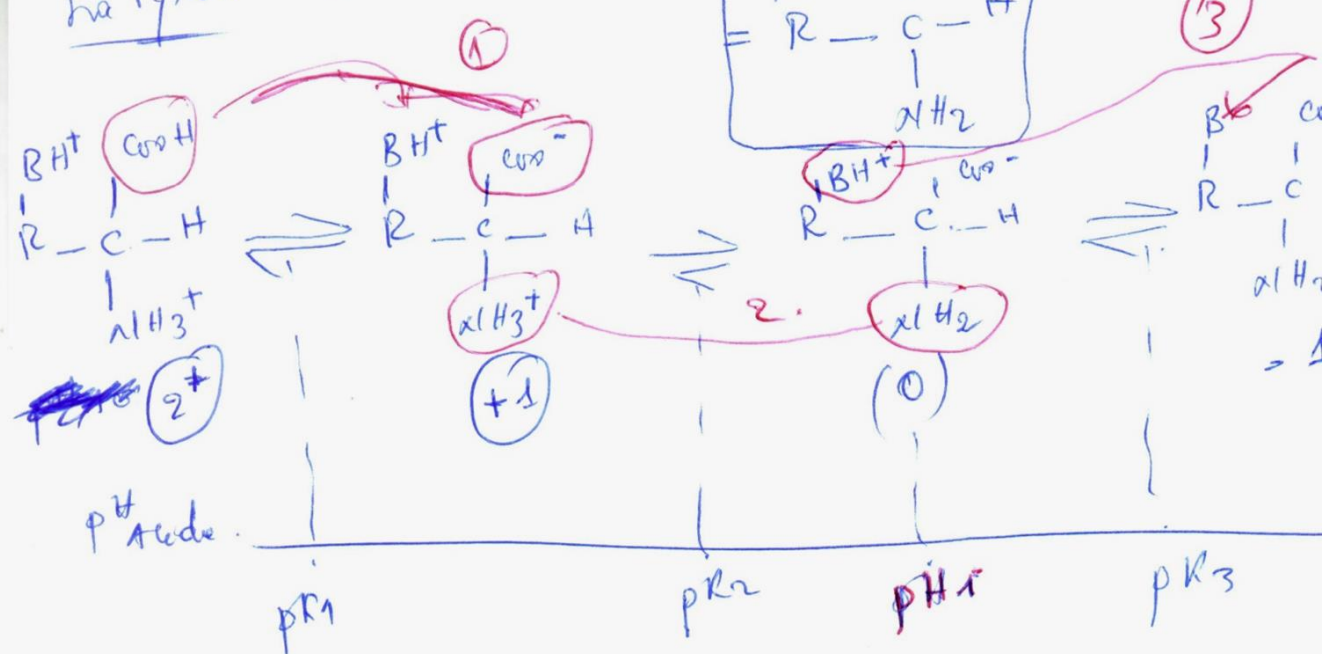 ①
③
= R — C — H
NH2
BH+ COOH
R — C — H
NH3+
2+
BH+ COO-
R — C — H
NH3+
+1
BH+ COO-
R — C — H
NH2
(0)
2.
B
R — C
NH2
pH Acide
pK1
pK2
pHi
pK3